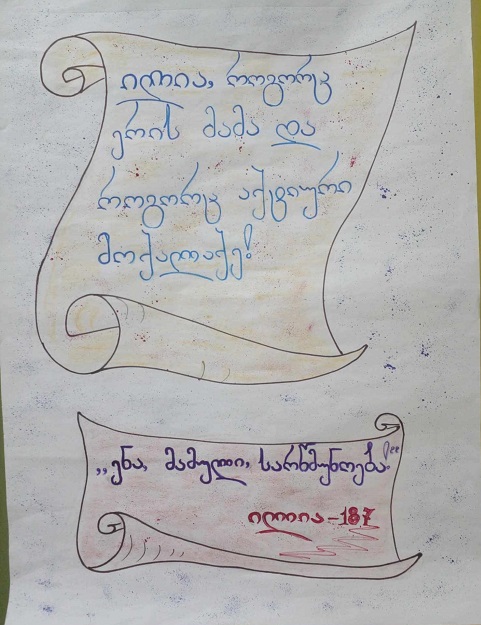 ილია, როგორც
ერის მამა და
როგორც აქტიური
მოქალაქე!
„ენა, მამული, სარწმუნოება!“
ილია-187